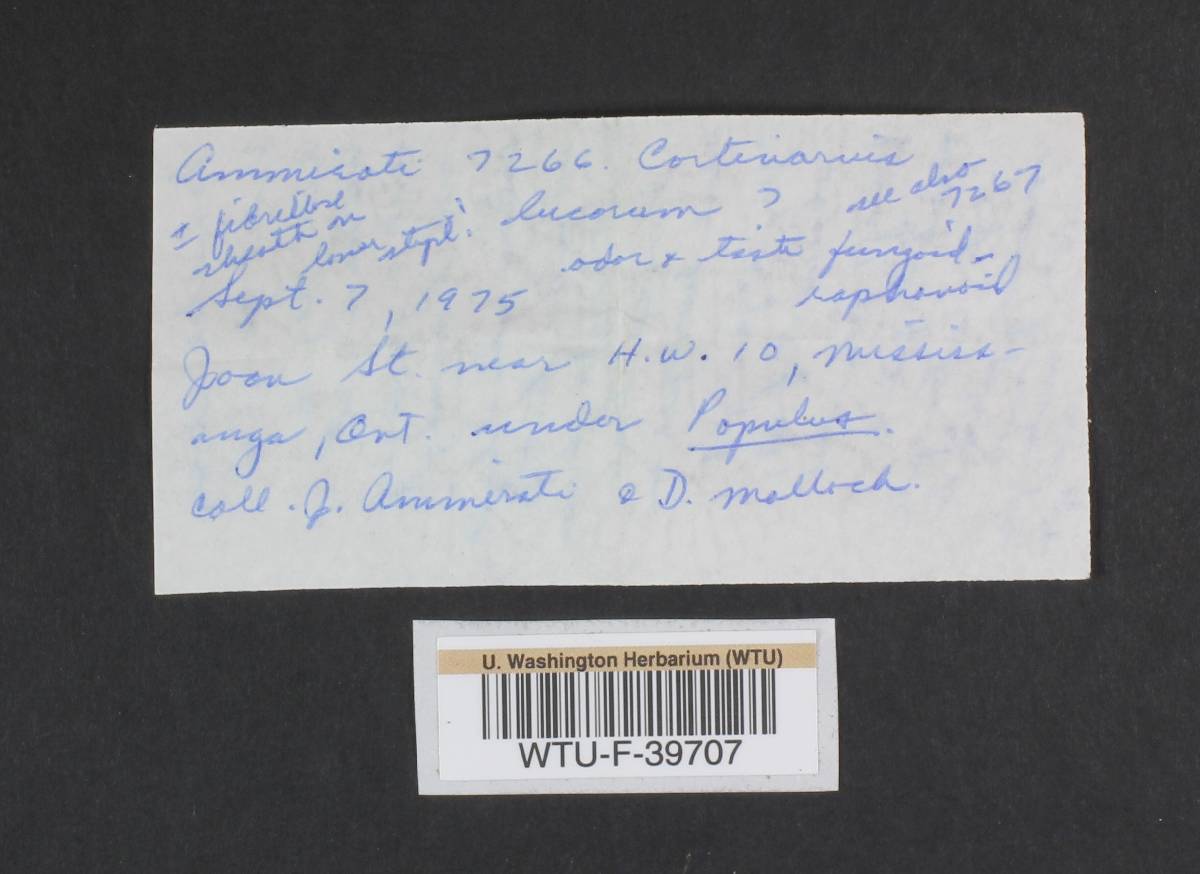 Ammirati 7266. Cortinarius
± fibrillose
sheath on
lower stipe!
lucorum ? see also
7267
odor & taste fungoid-
raphanoid
Sept. 7, 1975
Joan St. near H.W. 10, Mississ-
auga, Ont. under Populus.
coll. J. Ammirati & D. Malloch.
U. Washington Herbarium (WTU)
WTU-F-39707